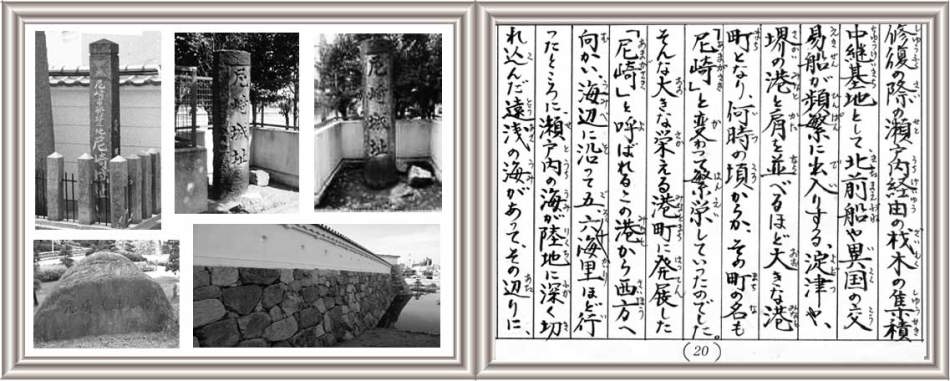 尼崎城址
尼崎城址
修復の際の瀬戸内経由の材木の集積
中継基地として北前船や異国の交
易船が頻繁に出入りする、淀津や、
堺の港と肩を並べるほど大きな港
町となり、何時の頃からか、その町の名も
「尼崎」と変わって繁栄していったのでした。
そんな大きな栄える港町に発展した
「尼崎」と呼ばれるこの港から西方へ
向かい、海辺に沿って五、六海里ほど行
ったところに、瀬戸内の海が陸地に深く切
れ込んだ遠浅の海があって、その辺りに、
(20)